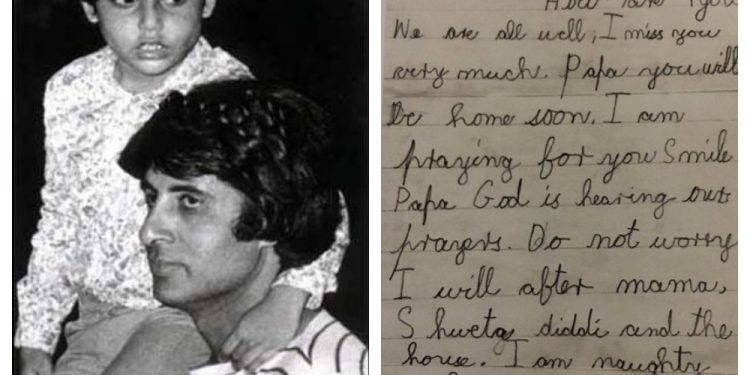 How are you
We are all well, I miss you
very much. Papa you will
be home soon. I am
praying for you Smile
Papa God is hearing our
prayers. Do not worry
I will after mama,
Shweta diddi and the
house. I am naughty